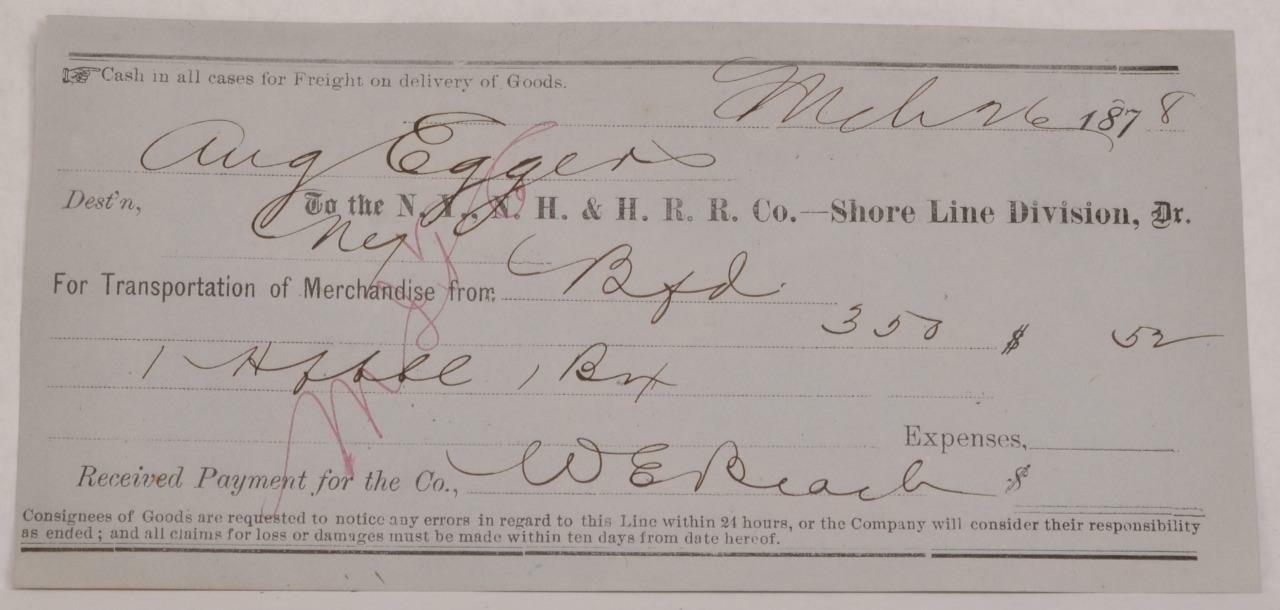 ☞ Cash in all cases for Freight on delivery of Goods.
Mch 26 1878
Aug Eggers
Dest'n,
To the N. Y., N. H. & H. R. R. Co.—Shore Line Division, Dr.
NY
For Transportation of Merchandise from Bfd
350 $ 52
1 Hf bbl 1 Bx
Expenses,
Received Payment for the Co., W E Beach $
Consignees of Goods are requested to notice any errors in regard to this Line within 24 hours, or the Company will consider their responsibility
as ended; and all claims for loss or damages must be made within ten days from date hereof.